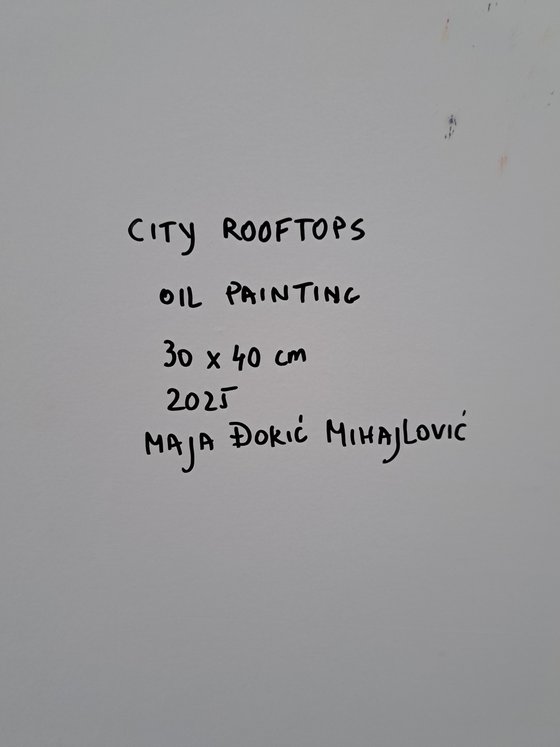 CITY ROOFTOPS
OIL PAINTING
30 x 40 cm
2025
MAJA ĐOKIĆ MIHAJLOVIĆ